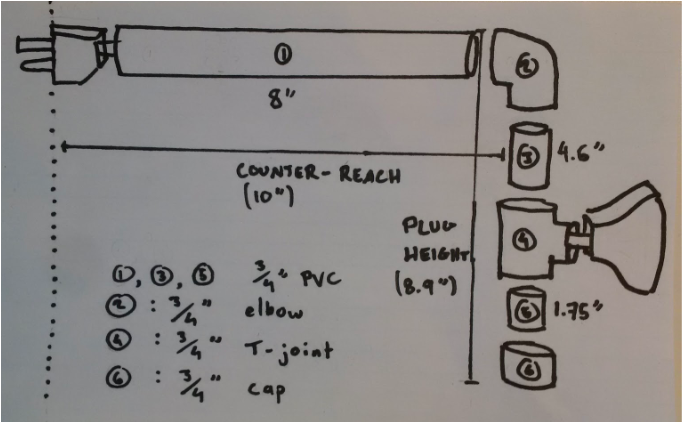 ①
②
8"
③ 4.6"
COUNTER-REACH
(10")
④
PLUG
HEIGHT
(8.9")
①, ③, ⑤ 3/4" PVC
② : 3/4" elbow
④ : 3/4" T-joint
⑥ : 3/4" cap
⑤ 1.75"
⑥